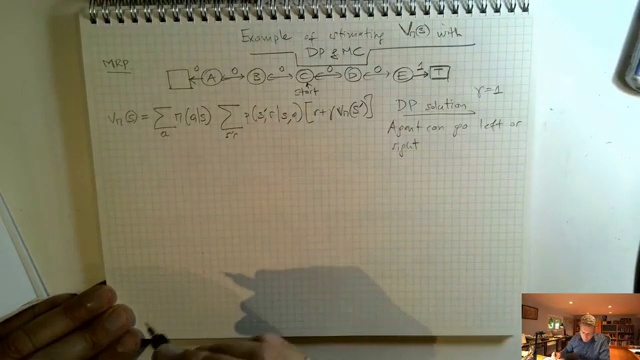 Example of estimating Vπ(s) with
DP & MC
MRP
0 A 0 B 0 C 0 D 0 E 1 T
start
Vπ(s) = Σ π(a|s) Σ p(s',r|s,a) [r+γVπ(s')]
a s'r
DP solution γ=1
Agent can go left or
right